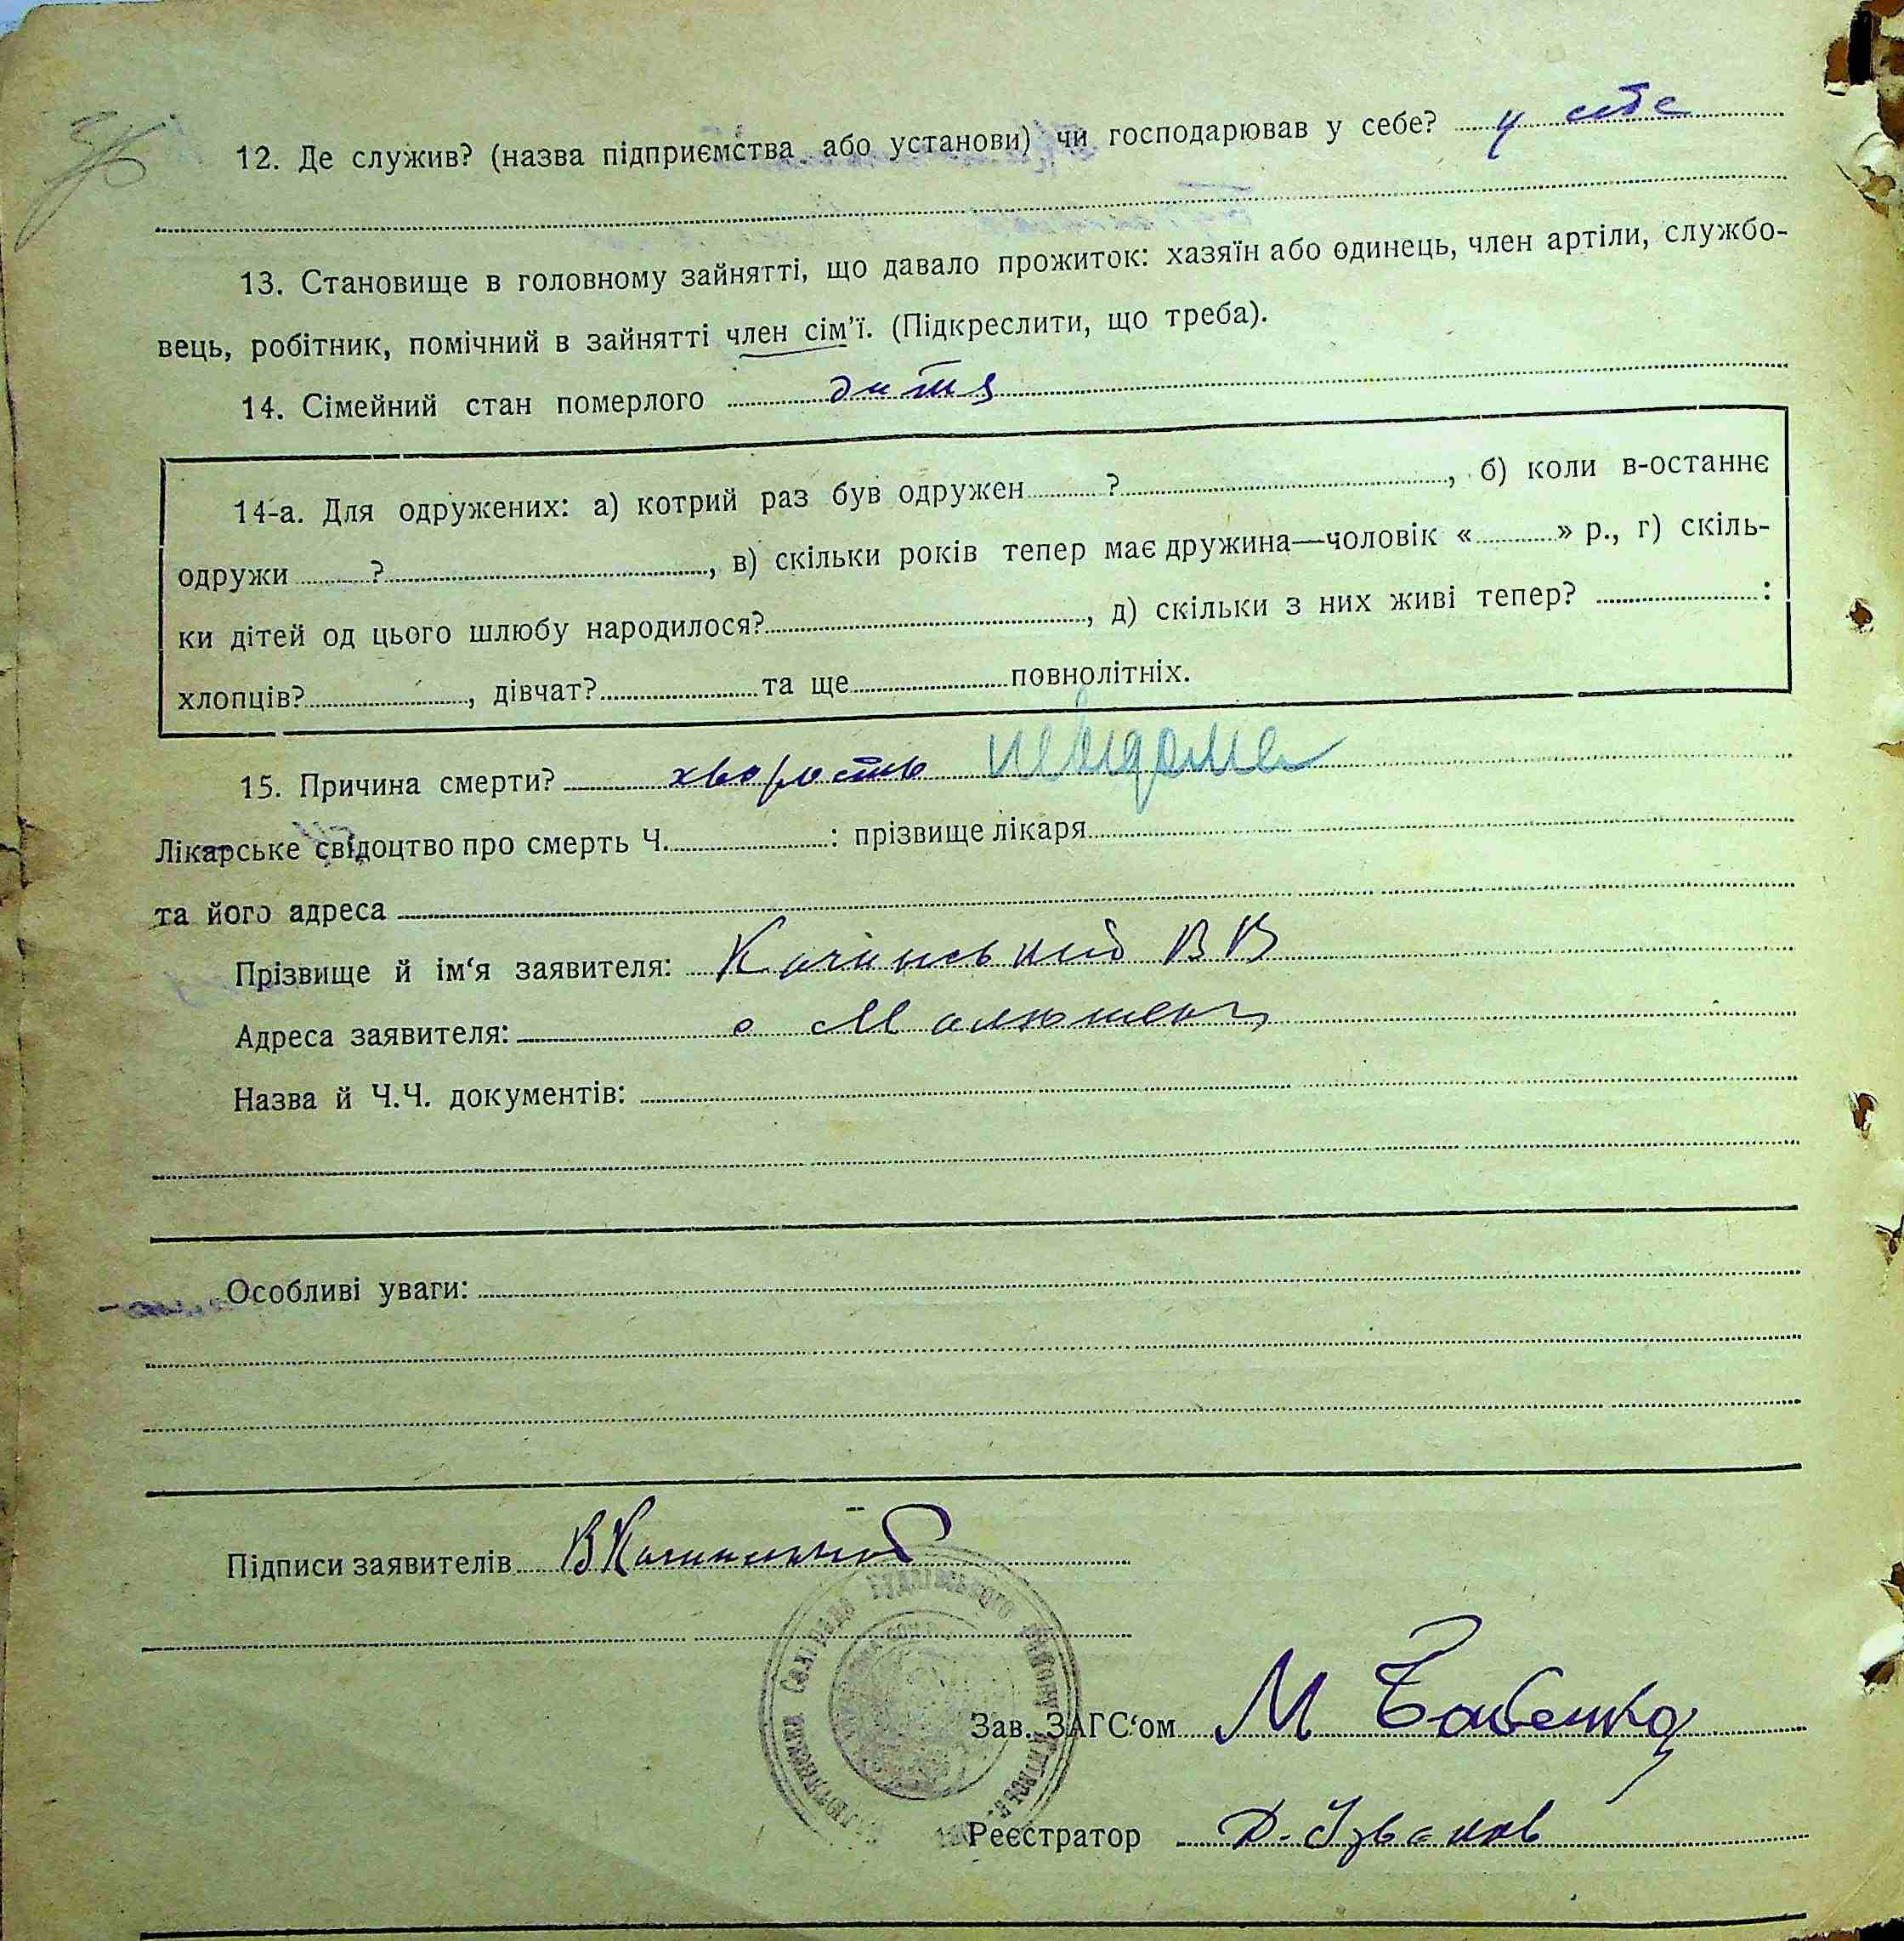 12. Де служив? (назва підприємства або установи) чи господарював у себе? у себе
13. Становище в головному зайнятті, що давало прожиток: хазяїн або одинець, член артіли, службо-
вець, робітник, помічний в зайнятті член сім’ї. (Підкреслити, що треба).
14. Сімейний стан померлого дитя
14-а. Для одружених: а) котрий раз був одружен ?, б) коли в-останнє
одружи ?, в) скільки років тепер має дружина—чоловік « » р., г) скіль-
ки дітей од цього шлюбу народилося?, д) скільки з них живі тепер? :
хлопців?, дівчат? та ще повнолітніх.
15. Причина смерти? невідома
Лікарське свідоцтво про смерть Ч. : прізвище лікаря
та його адреса
Прізвище й ім‘я заявителя: Качинський В В
Адреса заявителя: с Малюшен
Назва й Ч.Ч. документів:
Особливі уваги:
Підписи заявителів ВКачинський
Зав. ЗАГС‘ом М Бабенко
Реєстратор